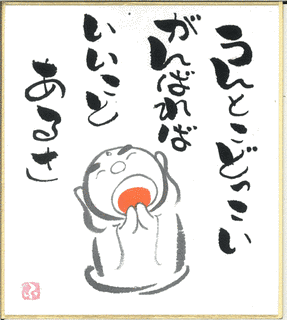 うんとこどっこい
がんばれば
いいこと
あるさ